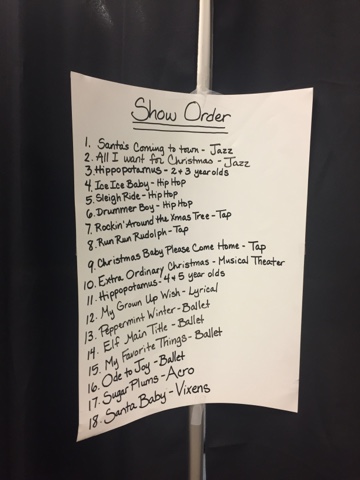 Show Order
1. Santa's Coming to town - Jazz
2. All I want for Christmas - Jazz
3. Hippopotamus - 2 + 3 year olds
4. Ice Ice Baby - Hip Hop
5. Sleigh Ride - Hip Hop
6. Drummer Boy - Hip Hop
7. Rockin' Around the Xmas Tree - Tap
8. Run Run Rudolph - Tap
9. Christmas Baby Please Come Home - Tap
10. Extra Ordinary Christmas - Musical Theater
11. Hippopotamus - 4 + 5 year olds
12. My Grown Up Wish - Lyrical
13. Peppermint Winter - Ballet
14. Elf Main Title - Ballet
15. My Favorite Things - Ballet
16. Ode to Joy - Ballet
17. Sugar Plums - Acro
18. Santa Baby - Vixens